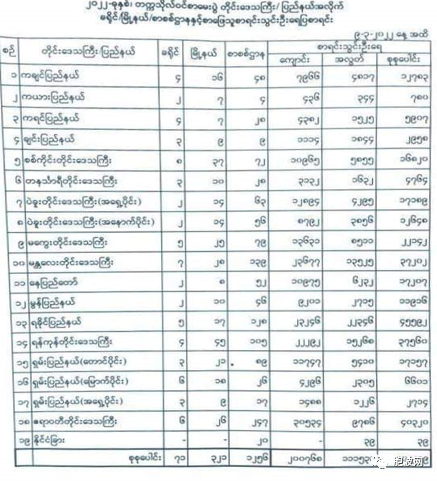 ၂၀၂၂-ခုနှစ်၊ တက္ကသိုလ်ဝင်စာမေးပွဲ တိုင်းဒေသကြီး/ ပြည်နယ်အလိုက်
ခရိုင်/မြို့နယ်/စာစစ်ဌာနနှင့်စာဖြေသူစာရင်းသွင်းဦးရေပြစာရင်း
၉-၃-၂၀၂၂ နေ့ အထိ
စဉ် တိုင်းဒေသကြီး/ပြည်နယ် ခရိုင် မြို့နယ် စာစစ်ဌာန စာရင်းသွင်းဦးရေ
ကျောင်း အလွတ် စုစုပေါင်း
၁ ကချင်ပြည်နယ် ၄ ၁၆ ၄၈ ၇၉၆၆ ၄၈၁၇ ၁၂၇၈၃
၂ ကယားပြည်နယ် ၂ ၇ ၄ ၄၃၆ ၃၄၄ ၇၈၀
၃ ကရင်ပြည်နယ် ၄ ၇ ၂၈ ၄၃၈၂ ၁၅၂၅ ၅၉၀၇
၄ ချင်းပြည်နယ် ၃ ၉ ၉ ၁၁၁၄ ၁၈၄၄ ၂၉၅၈
၅ စစ်ကိုင်းတိုင်းဒေသကြီး ၈ ၃၇ ၇၂ ၁၀၉၆၅ ၅၈၅၅ ၁၆၈၂၀
၆ တနင်္သာရီတိုင်းဒေသကြီး ၃ ၁၀ ၂၈ ၃၁၃၂ ၁၆၃၂ ၄၇၆၄
၇ ပဲခူးတိုင်းဒေသကြီး(အရှေ့ပိုင်း) ၂ ၁၄ ၆၃ ၁၂၈၉၄ ၄၂၉၅ ၁၇၁၈၉
၈ ပဲခူးတိုင်းဒေသကြီး(အနောက်ပိုင်း) ၂ ၁၄ ၅၆ ၈၇၉၂ ၃၈၅၆ ၁၂၆၄၈
၉ မကွေးတိုင်းဒေသကြီး ၅ ၂၅ ၇၉ ၁၃၆၃၁ ၈၅၁၁ ၂၂၁၄၂
၁၀ မန္တလေးတိုင်းဒေသကြီး ၇ ၂၈ ၁၃၉ ၂၃၆၇၇ ၁၃၅၂၅ ၃၇၂၀၂
၁၁ နေပြည်တော် ၂ ၈ ၅၂ ၁၀၉၇၅ ၆၂၃၂ ၁၇၂၀၇
၁၂ မွန်ပြည်နယ် ၂ ၁၀ ၄၆ ၉၂၀၁ ၂၇၁၅ ၁၁၉၁၆
၁၃ ရခိုင်ပြည်နယ် ၅ ၁၇ ၁၂၈ ၂၃၂၄၆ ၂၂၃၄၆ ၄၅၅၉၂
၁၄ ရန်ကုန်တိုင်းဒေသကြီး ၄ ၄၅ ၁၀၅ ၂၂၂၉၂ ၁၅၂၆၈ ၃၇၅၆၀
၁၅ ရှမ်းပြည်နယ်(တောင်ပိုင်း) ၃ ၂၁ ၈၉ ၁၁၇၄၇ ၅၄၁၀ ၁၇၁၅၇
၁၆ ရှမ်းပြည်နယ်(မြောက်ပိုင်း) ၆ ၁၈ ၂၆ ၄၂၉၆ ၂၃၀၅ ၆၆၀၁
၁၇ ရှမ်းပြည်နယ်(အရှေ့ပိုင်း) ၃ ၉ ၁၇ ၁၄၈၈ ၁၂၂၆ ၂၇၁၄
၁၈ ဧရာဝတီတိုင်းဒေသကြီး ၆ ၂၆ ၂၄၇ ၃၀၅၃၄ ၉၇၈၆ ၄၀၃၂၀
၁၉ နိုင်ငံခြား - - ၂၀ - ၃၉ ၃၉
စုစုပေါင်း ၇၁ ၃၂၁ ၁၂၅၆ ၂၀၀၇၆၈